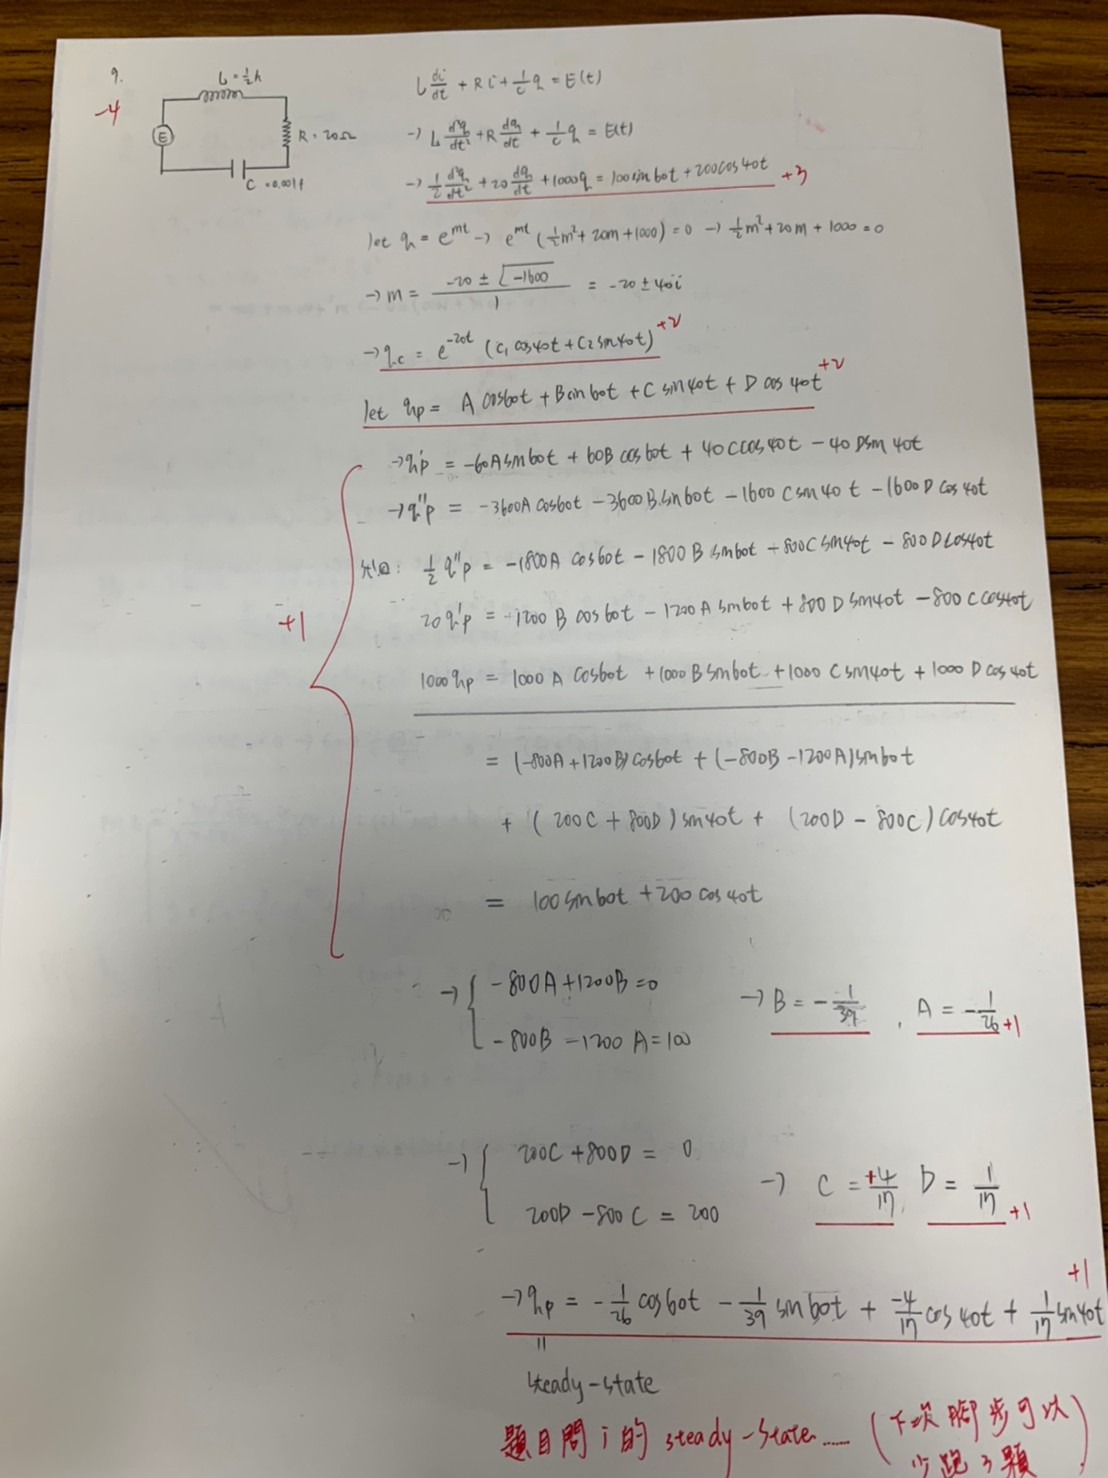 9.
-4
L = ½h
E
R = 20Ω
C = 0.001f
L di/dt + Ri + 1/c q = E(t)
→ L d²q/dt² + R dq/dt + 1/c q = E(t)
→ 1/2 d²q/dt² + 20 dq/dt + 1000q = 100 sin 60t + 200 cos 40t +3
let q = e^mt → e^mt (½m² + 20m + 1000) = 0 → ½m² + 20m + 1000 = 0
→ m = (-20 ± √-1600)/1 = -20 ± 40i
→ qc = e^-20t (c₁ cos40t + c₂ sin40t) +2
let qp = A cos60t + B sin60t + C sin40t + D cos40t +2
→ q'p = -60A sin60t + 60B cos60t + 40C cos40t - 40D sin40t
→ q"p = -3600A cos60t - 3600B sin60t - 1600C sin40t - 1600D cos40t
½ q"p = -1800A cos60t - 1800B sin60t - 800C sin40t - 800D cos40t
+1
20q'p = -1200B cos60t - 1200A sin60t + 800D sin40t - 800C cos40t
1000qp = 1000A cos60t + 1000B sin60t + 1000C sin40t + 1000D cos40t
= (-800A + 1200B) cos60t + (-800B - 1200A) sin60t
+ (200C + 800D) sin40t + (200D - 800C) cos40t
= 100 sin60t + 200 cos40t
→ { -800A + 1200B = 0
-800B - 1200A = 100
→ B = -1/39 , A = -1/26 +1
→ { 200C + 800D = 0
200D - 800C = 200
→ C = +4/17, D = 1/17 +1
→ qp = -1/26 cos60t - 1/39 sin60t + -4/17 cos40t + 1/17 sin40t +1
=
steady-state
題目問 i 的 steady-state...... (下次腳步可以
少跑3題